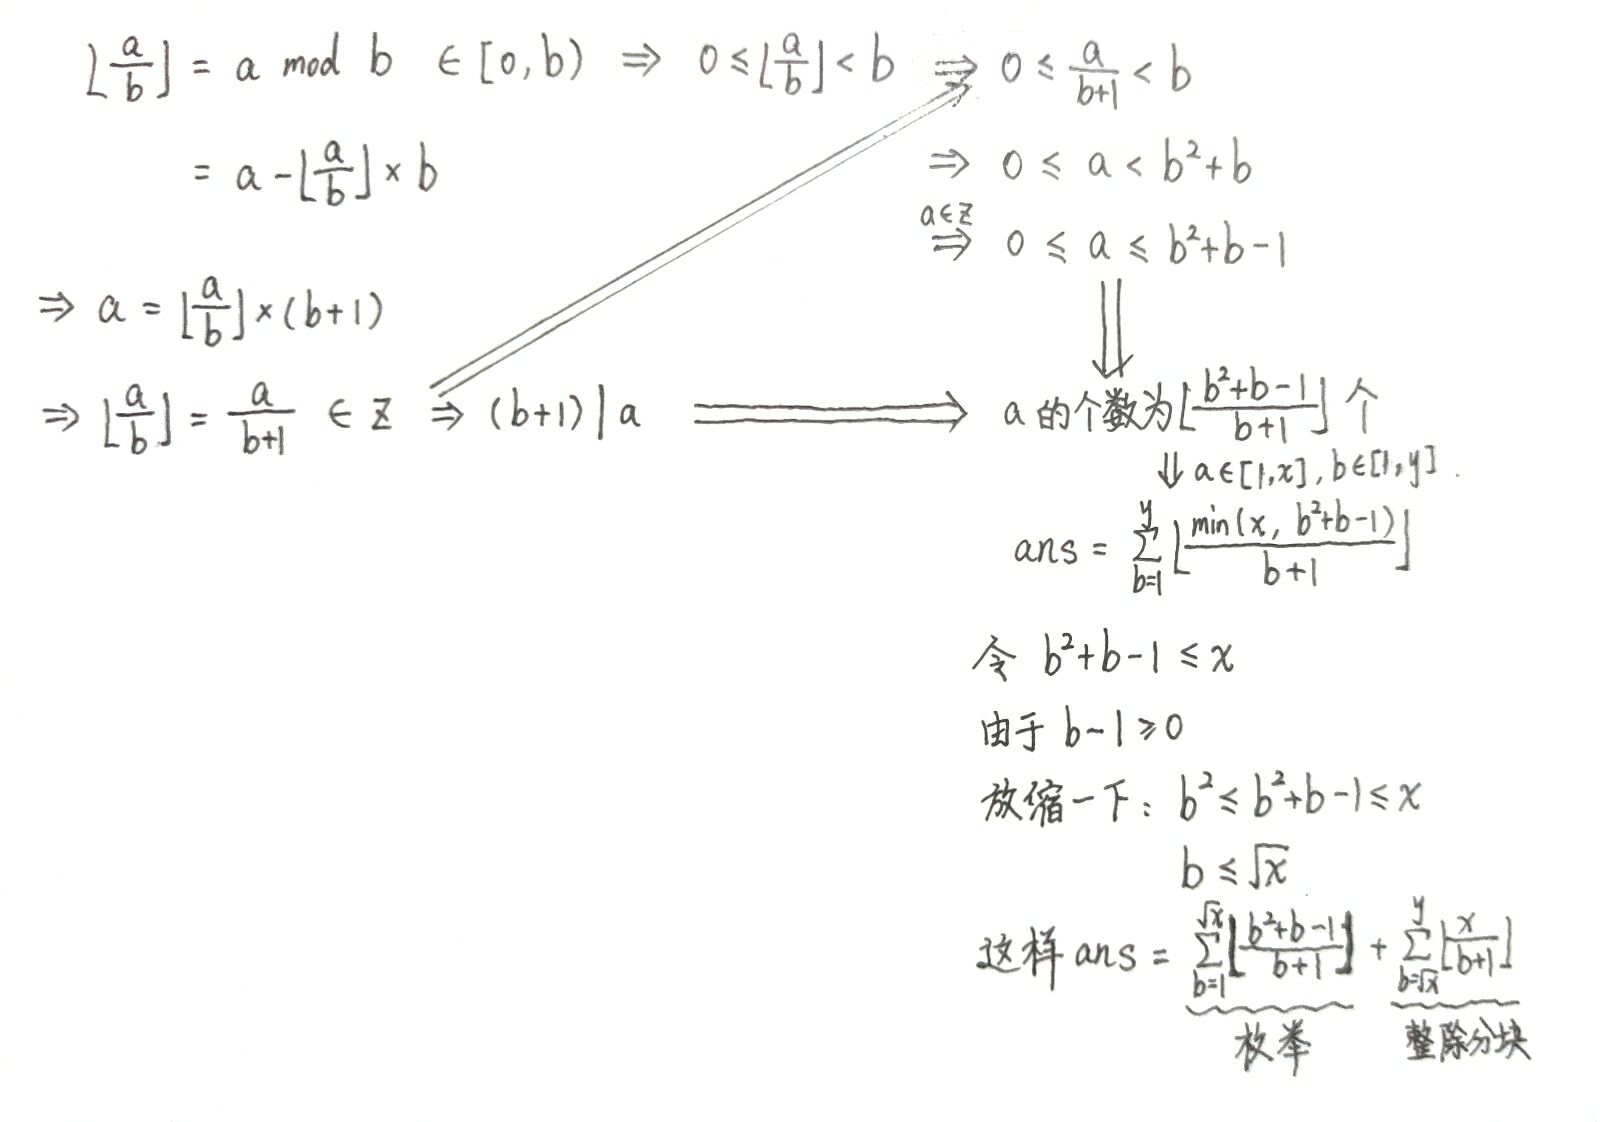 ⌊a/b⌋ = a mod b ∈ [0, b) ⇒ 0 ≤ ⌊a/b⌋ < b ⇒ 0 ≤ a/(b+1) < b
= a - ⌊a/b⌋ × b
⇒ 0 ≤ a < b²+b
a∈Z
⇒ 0 ≤ a ≤ b²+b-1
⇒ a = ⌊a/b⌋ × (b+1)
⇒ ⌊a/b⌋ = a/(b+1) ∈ Z ⇒ (b+1) | a ⇒ a 的个数为⌊(b²+b-1)/(b+1)⌋ 个
⇓ a∈[1,x], b∈[1,y].
ans = ∑_{b=1}^{y} ⌊min(x, b²+b-1)/(b+1)⌋
令 b²+b-1 ≤ x
由于 b-1 ≥ 0
放缩一下: b² ≤ b²+b-1 ≤ x
b ≤ √x
这样 ans = ∑_{b=1}^{√x} ⌊(b²+b-1)/(b+1)⌋ + ∑_{b=√x}^{y} ⌊x/(b+1)⌋
枚举 整除分块